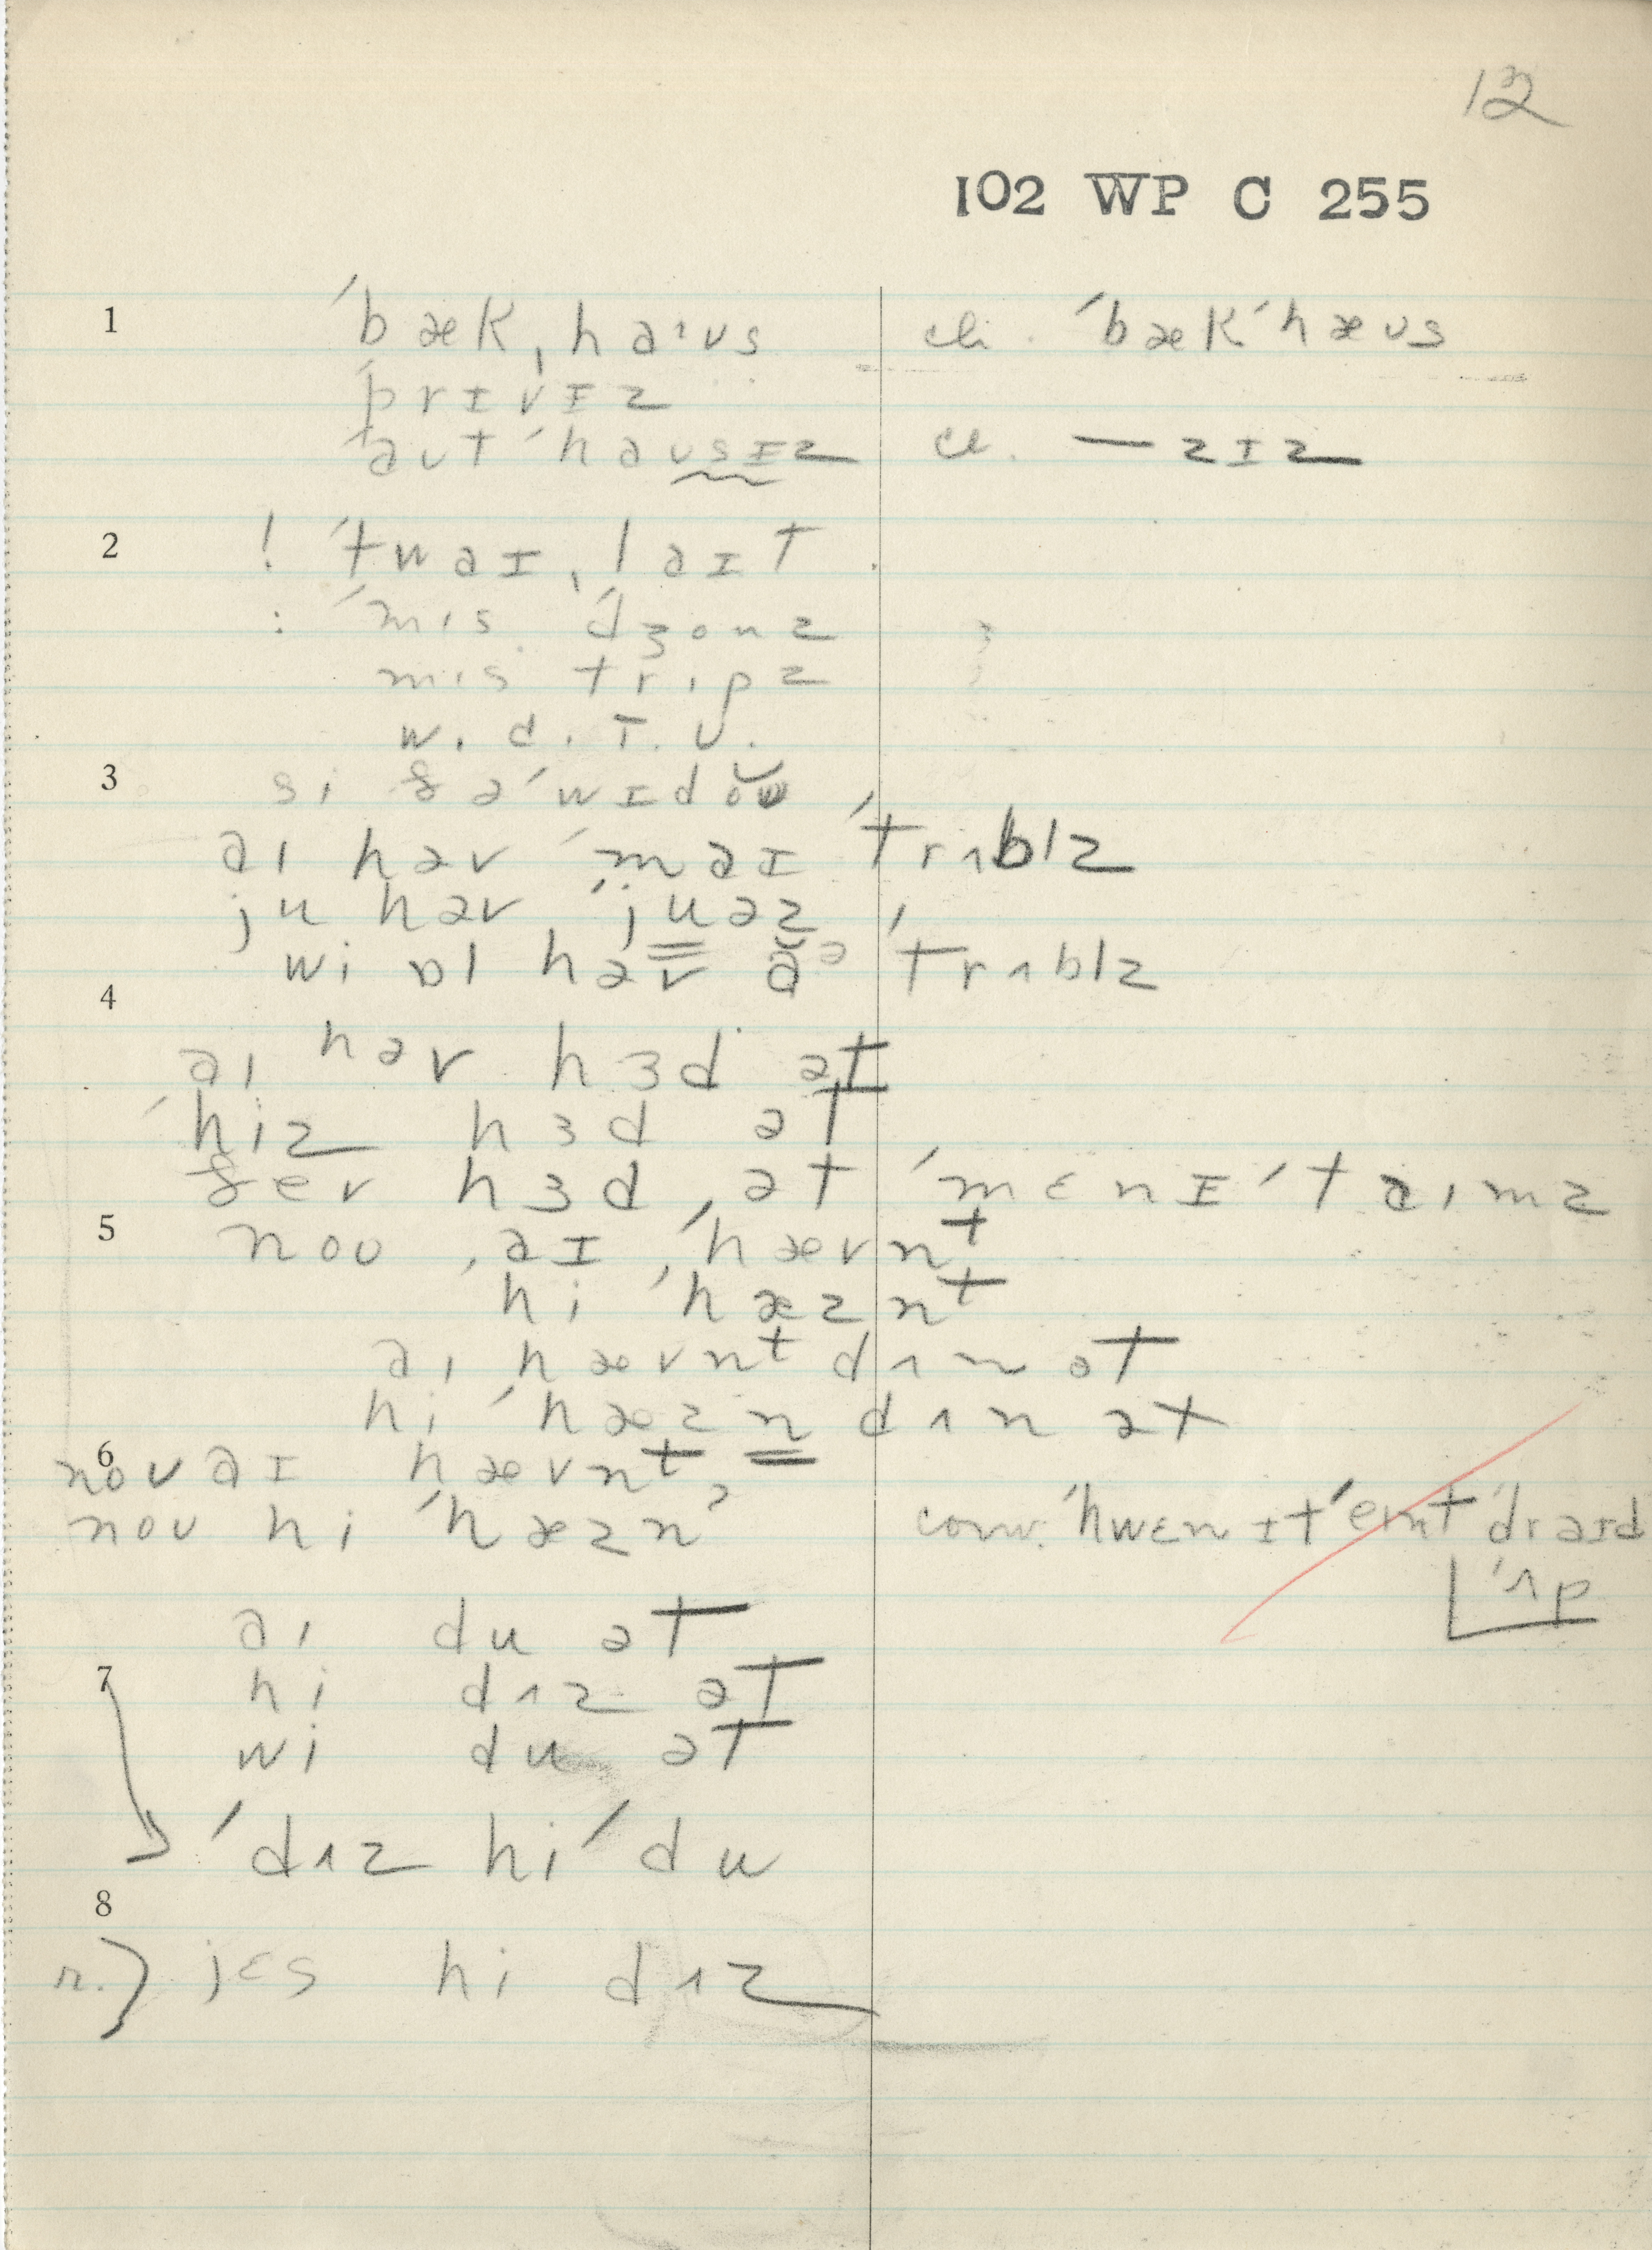 12
102 WP C 255
1 ˈbæk ˌhaˑʊs cli. ˈbækˈhæʊs
ˈprɪvɪz
ˈaʊtˈhaʊsɪz cl. — zɪz
2 ! ˈtwaɪˌlaɪt
: ˈmɪs ˈdʒonz
mɪs trɪpz
w. d. T. U.
3 si
ai həv ˈmaɪ ˈtrʌblz
ju həv ˈjuəz
wi ɒl həv ă ə ˈtrʌblz
4
ai həv hɜd ət
ˈhiz hɜd ət
hɜd ət ˈmɛnɪ ˈtaimz
5 noʊ ˌaɪ ˈhævnt
hi ˈhæznt
ai hævnt dʌn ət
hi ˈhæzn dʌn ət
6 noʊ aɪ hævnt
noʊ hi ˈhæznˀ conv. ˈhwɛn ɪt ˈeɪnt ˈdraɪd
ˈʌp
ai du ət
7 hi dʌz ət
wi du ət
ˈdʌz hi ˈdu
8
r.) jɛs hi dʌz